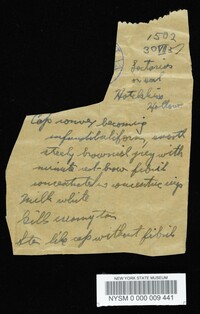 1502
30 VII 52
Lactarius
Hotchkiss
Hollow
Cap convex becoming
infundibuliform, smooth
steely brownish grey with
minute fibril
concentrate in concentric rings
Milk white
Gills
Stem like cap without fibril
NEW YORK STATE MUSEUM
NYSM 0 000 009 441